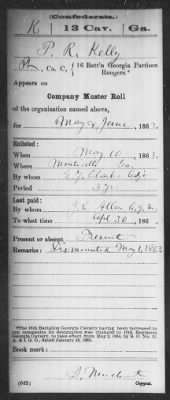 Confederate.
K 13 Cav. Ga.
P. R. Kelly
Co. C, 16 Batt'n Georgia Partisan Rangers.*
Appears on
Company Muster Roll
of the organization named above,
for May & June, 186
Enlisted:
When May 10, 186
Where Monticello Ga
By whom
Period 3 yr
Last paid:
By whom J. E. Allen A.Q.M.
To what time Apl 30, 186
Present or absent Present
Remarks: Dismounted May 1, 1862
*The 16th Battalion Georgia Cavalry having been increased to
ten companies its designation was changed to 13th Regiment
Georgia Cavalry, to take effect from May 2, 1864, by S. O. No.
A. & I. G. O., dated January 1865.
Book mark:
(642) Copyist.